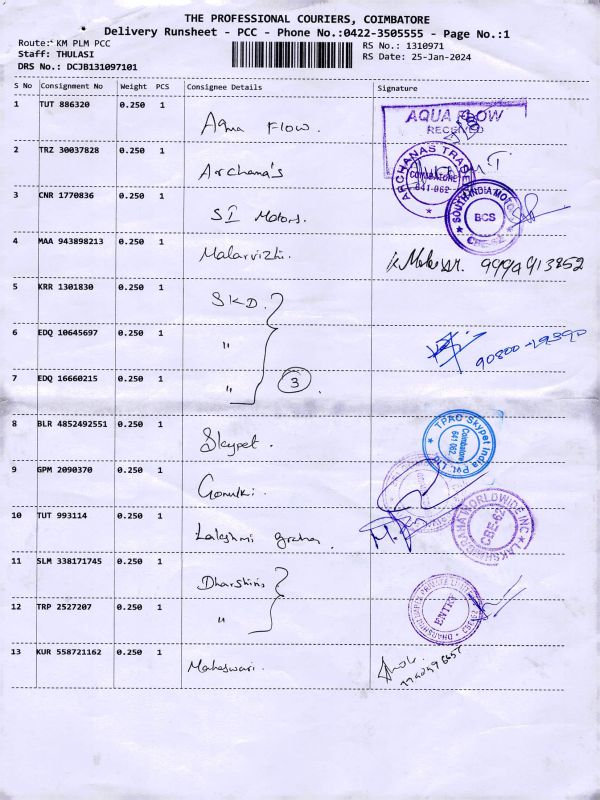 THE PROFESSIONAL COURIERS, COIMBATORE
Delivery Runsheet - PCC - Phone No.:0422-3505555 - Page No.:1
Route: KM PLM PCC
Staff: THULASI
DRS No.: DCJB131097101
RS No.: 1310971
RS Date: 25-Jan-2024
S No Consignment No Weight PCS Consignee Details Signature
1 TUT 886320 0.250 1 Aqua Flow.
AQUA FLOW
RECEIVED
2 TRZ 30037828 0.250 1 Archana's
ARCHANAS TRADE
COIMBATORE
641 062
3 CNR 1770836 0.250 1 SI Motors.
SOUTH INDIA MOTOR
BCS
CBE-62
4 MAA 943898213 0.250 1 Malarvizhi.
9994913852
5 KRR 1301830 0.250 1 SKD.
6 EDQ 10645697 0.250 1 "
7 EDQ 16660215 0.250 1 "
3
8 BLR 4852492551 0.250 1 Skypet.
TPAC Skypet India Pvt. Ltd
Coimbatore
641 062.
9 GPM 2090370 0.250 1
10 TUT 993114 0.250 1 Lakshmi
WORLDWIDE INC
CBE-62
11 SLM 338171745 0.250 1 Dharshinis
12 TRP 2527207 0.250 1 "
PRIVATE LIMITED
ENTRY
13 KUR 558721162 0.250 1 Maheswari.